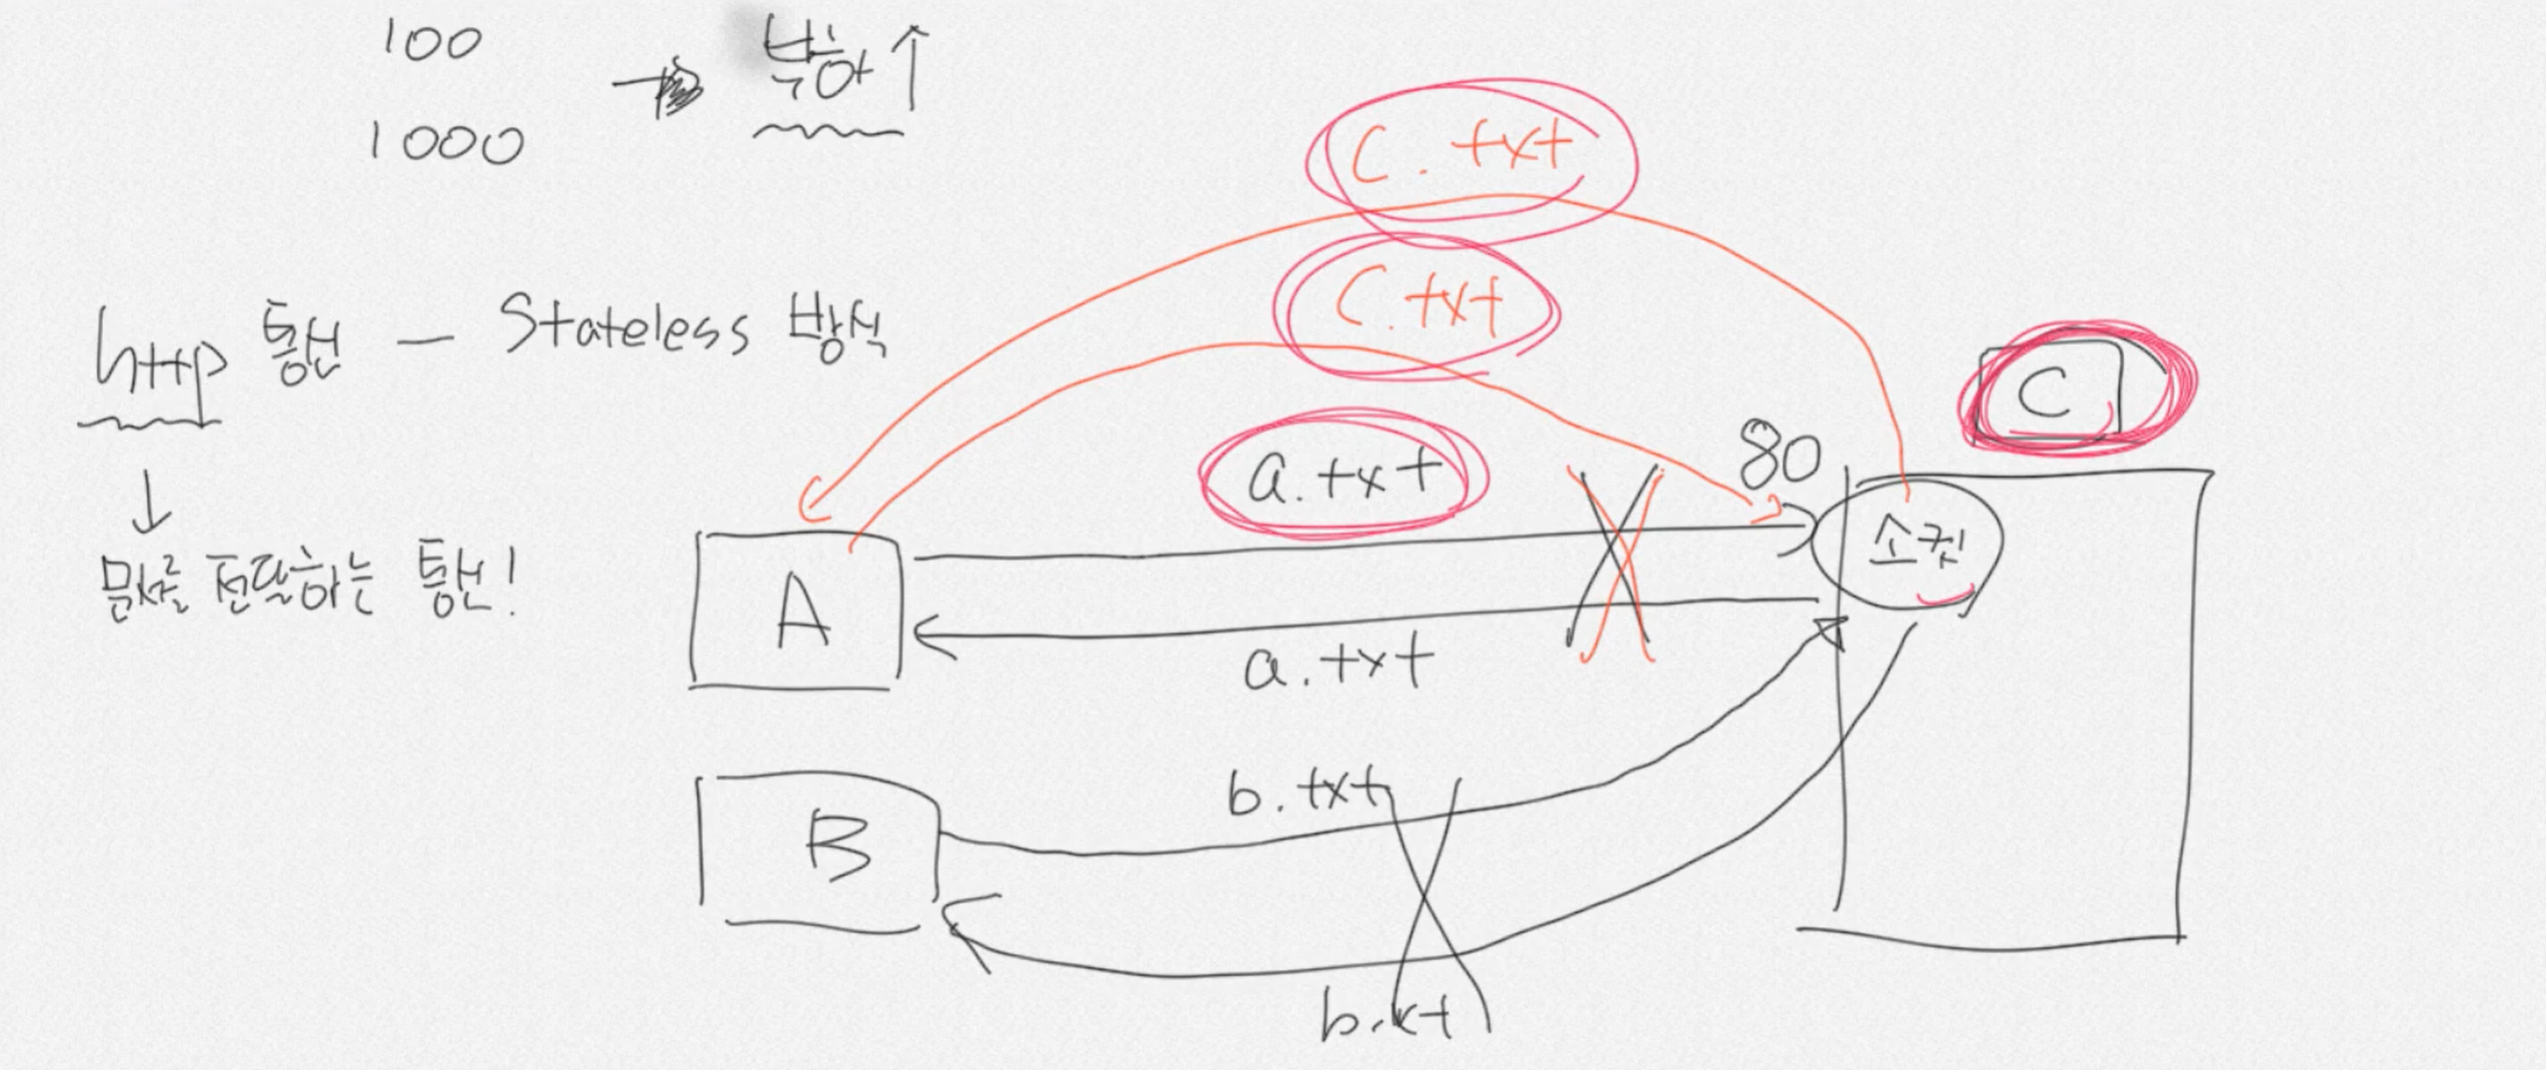 100
→ 부하 ↑
1000
http 통신 - Stateless 방식
↓
문서를 전달하는 통신!
C.txt
C.txt
a.txt
80
C
소켓
A
a.txt
b.txt
B
b.txt